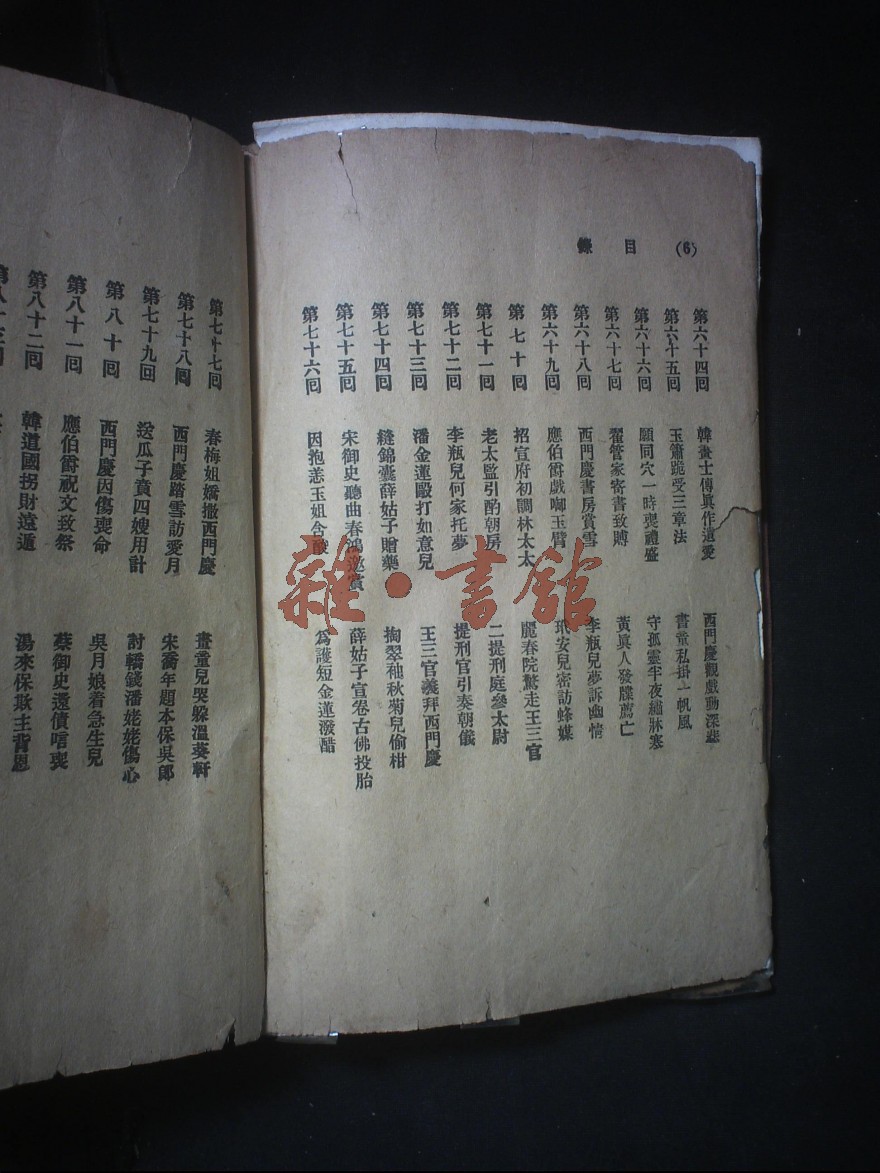 (6) 目 錄
第六十四回 韓畫士傳眞作遺愛 西門慶觀戲動深悲
第六十五回 玉簫跪受三章法 書童私掛一帆風
第六十六回 願同穴一時喪禮盛 守孤靈半夜繡牀寒
第六十七回 翟管家寄書致賻 黃眞人發牒薦亡
第六十八回 西門慶書房賞雪 李瓶兒夢訴幽情
第六十九回 應伯爵戲啣玉臂 玳安兒密訪蜂媒
第七十回 招宣府初調林太太 麗春院驚走王三官
第七十一回 老太監引酌朝房 二提刑庭參太尉
第七十二回 李瓶兒何家托夢 提刑官引奏朝儀
第七十三回 潘金蓮毆打如意兒 王三官義拜西門慶
第七十四回 縫錦囊薛姑子贈藥 掏翠袖秋菊兒偷柑
第七十五回 宋御史聽曲春鴻邀賞 薛姑子宣卷古佛投胎
第七十六回 因抱恙玉姐含酸 爲護短金蓮潑醋
第七十七回 春梅姐嬌撒西門慶 畫童兒哭躲溫葵軒
第七十八回 西門慶踏雪訪愛月 宋喬年題本保吳郞
第七十九回 送瓜子賁四嫂用計 討轎錢潘姥姥傷心
第八十回 西門慶因傷喪命 吳月娘着急生兒
第八十一回 應伯爵祝文致祭 蔡御史還債唁喪
第八十二回 韓道國拐財遠遁 湯來保欺主背恩
雜·書館